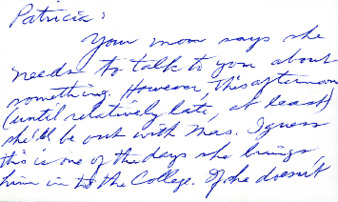 Patricia:
Your mom says she
needs to talk to you about
something. However, this afternoon
(until relatively late, at least)
she'll be out with Mrs. I guess
this is one of the days she brings
him in to the College. If she doesn't